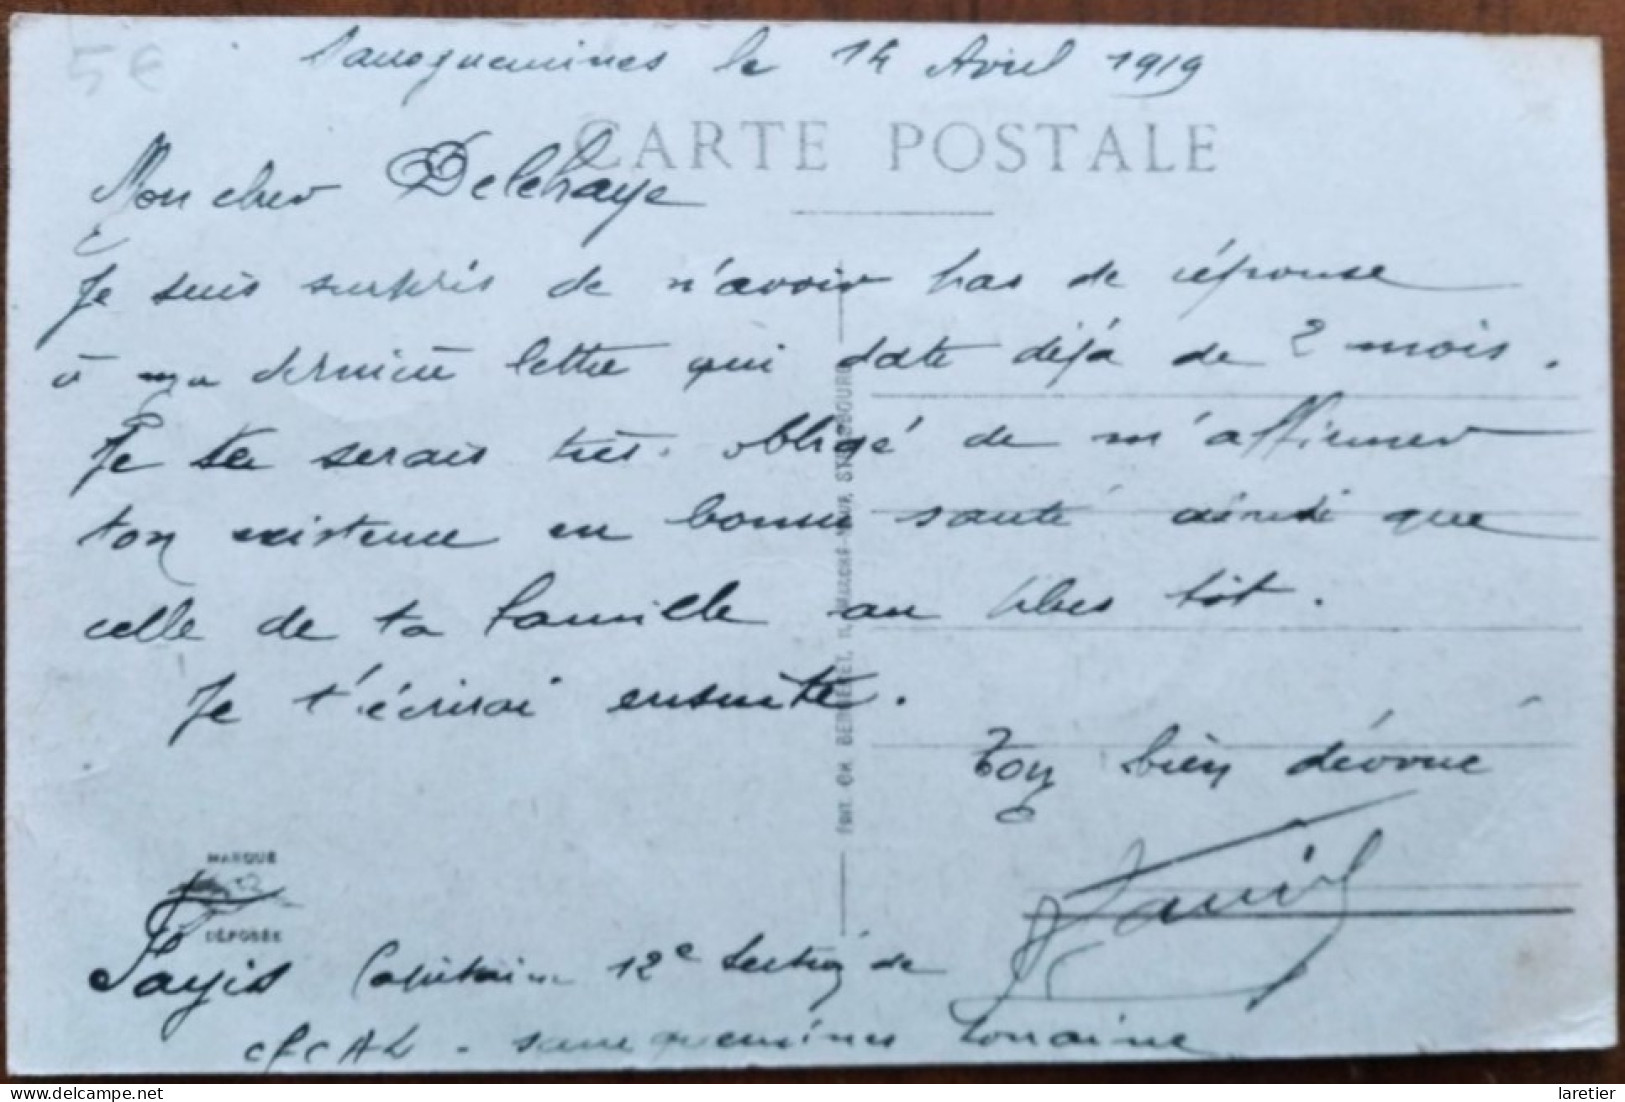 5€
Sarreguemines le 14 Avril 1919
CARTE POSTALE
Mon cher Delehaye
Je suis surpris de n'avoir pas de réponse
à ma dernière lettre qui date déjà de 2 mois.
Je te serais très obligé de m'affirmer
ton existence en bonne santé ainsi que
celle de ta famille au plus tôt.
Je t'écrirai ensuite.
Ton bien dévoué
MARQUE
DÉPOSÉE
Payis Capitaine 12e Section de
CFCAL - Sarreguemines Lorraine
laretier